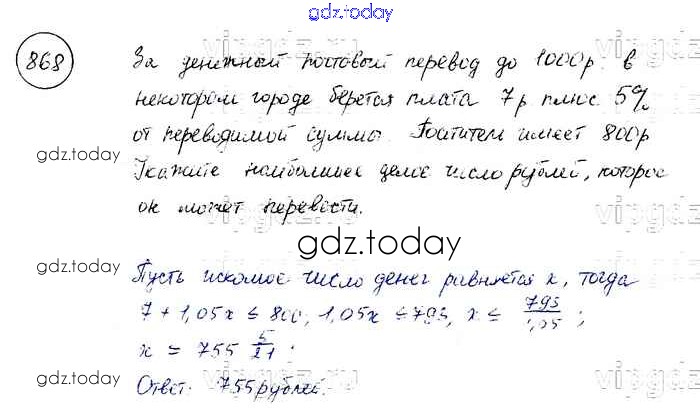 gdz.today
868
За денежный почтовый перевод до 1000р. в
некотором городе берется плата 7р плюс 5%
от переводимой суммы. Посетитель имеет 800р
gdz.today
Укажите наибольшее целое число рублей, которое
он может перевести.
gdz.today
Пусть искомое число денег равняется x, тогда
gdz.today
7 + 1,05x ≤ 800, 1,05x ≤ 793, x ≤ 793/1,05 ;
x = 755 5/21 ;
gdz.today
Ответ: 755 рублей.